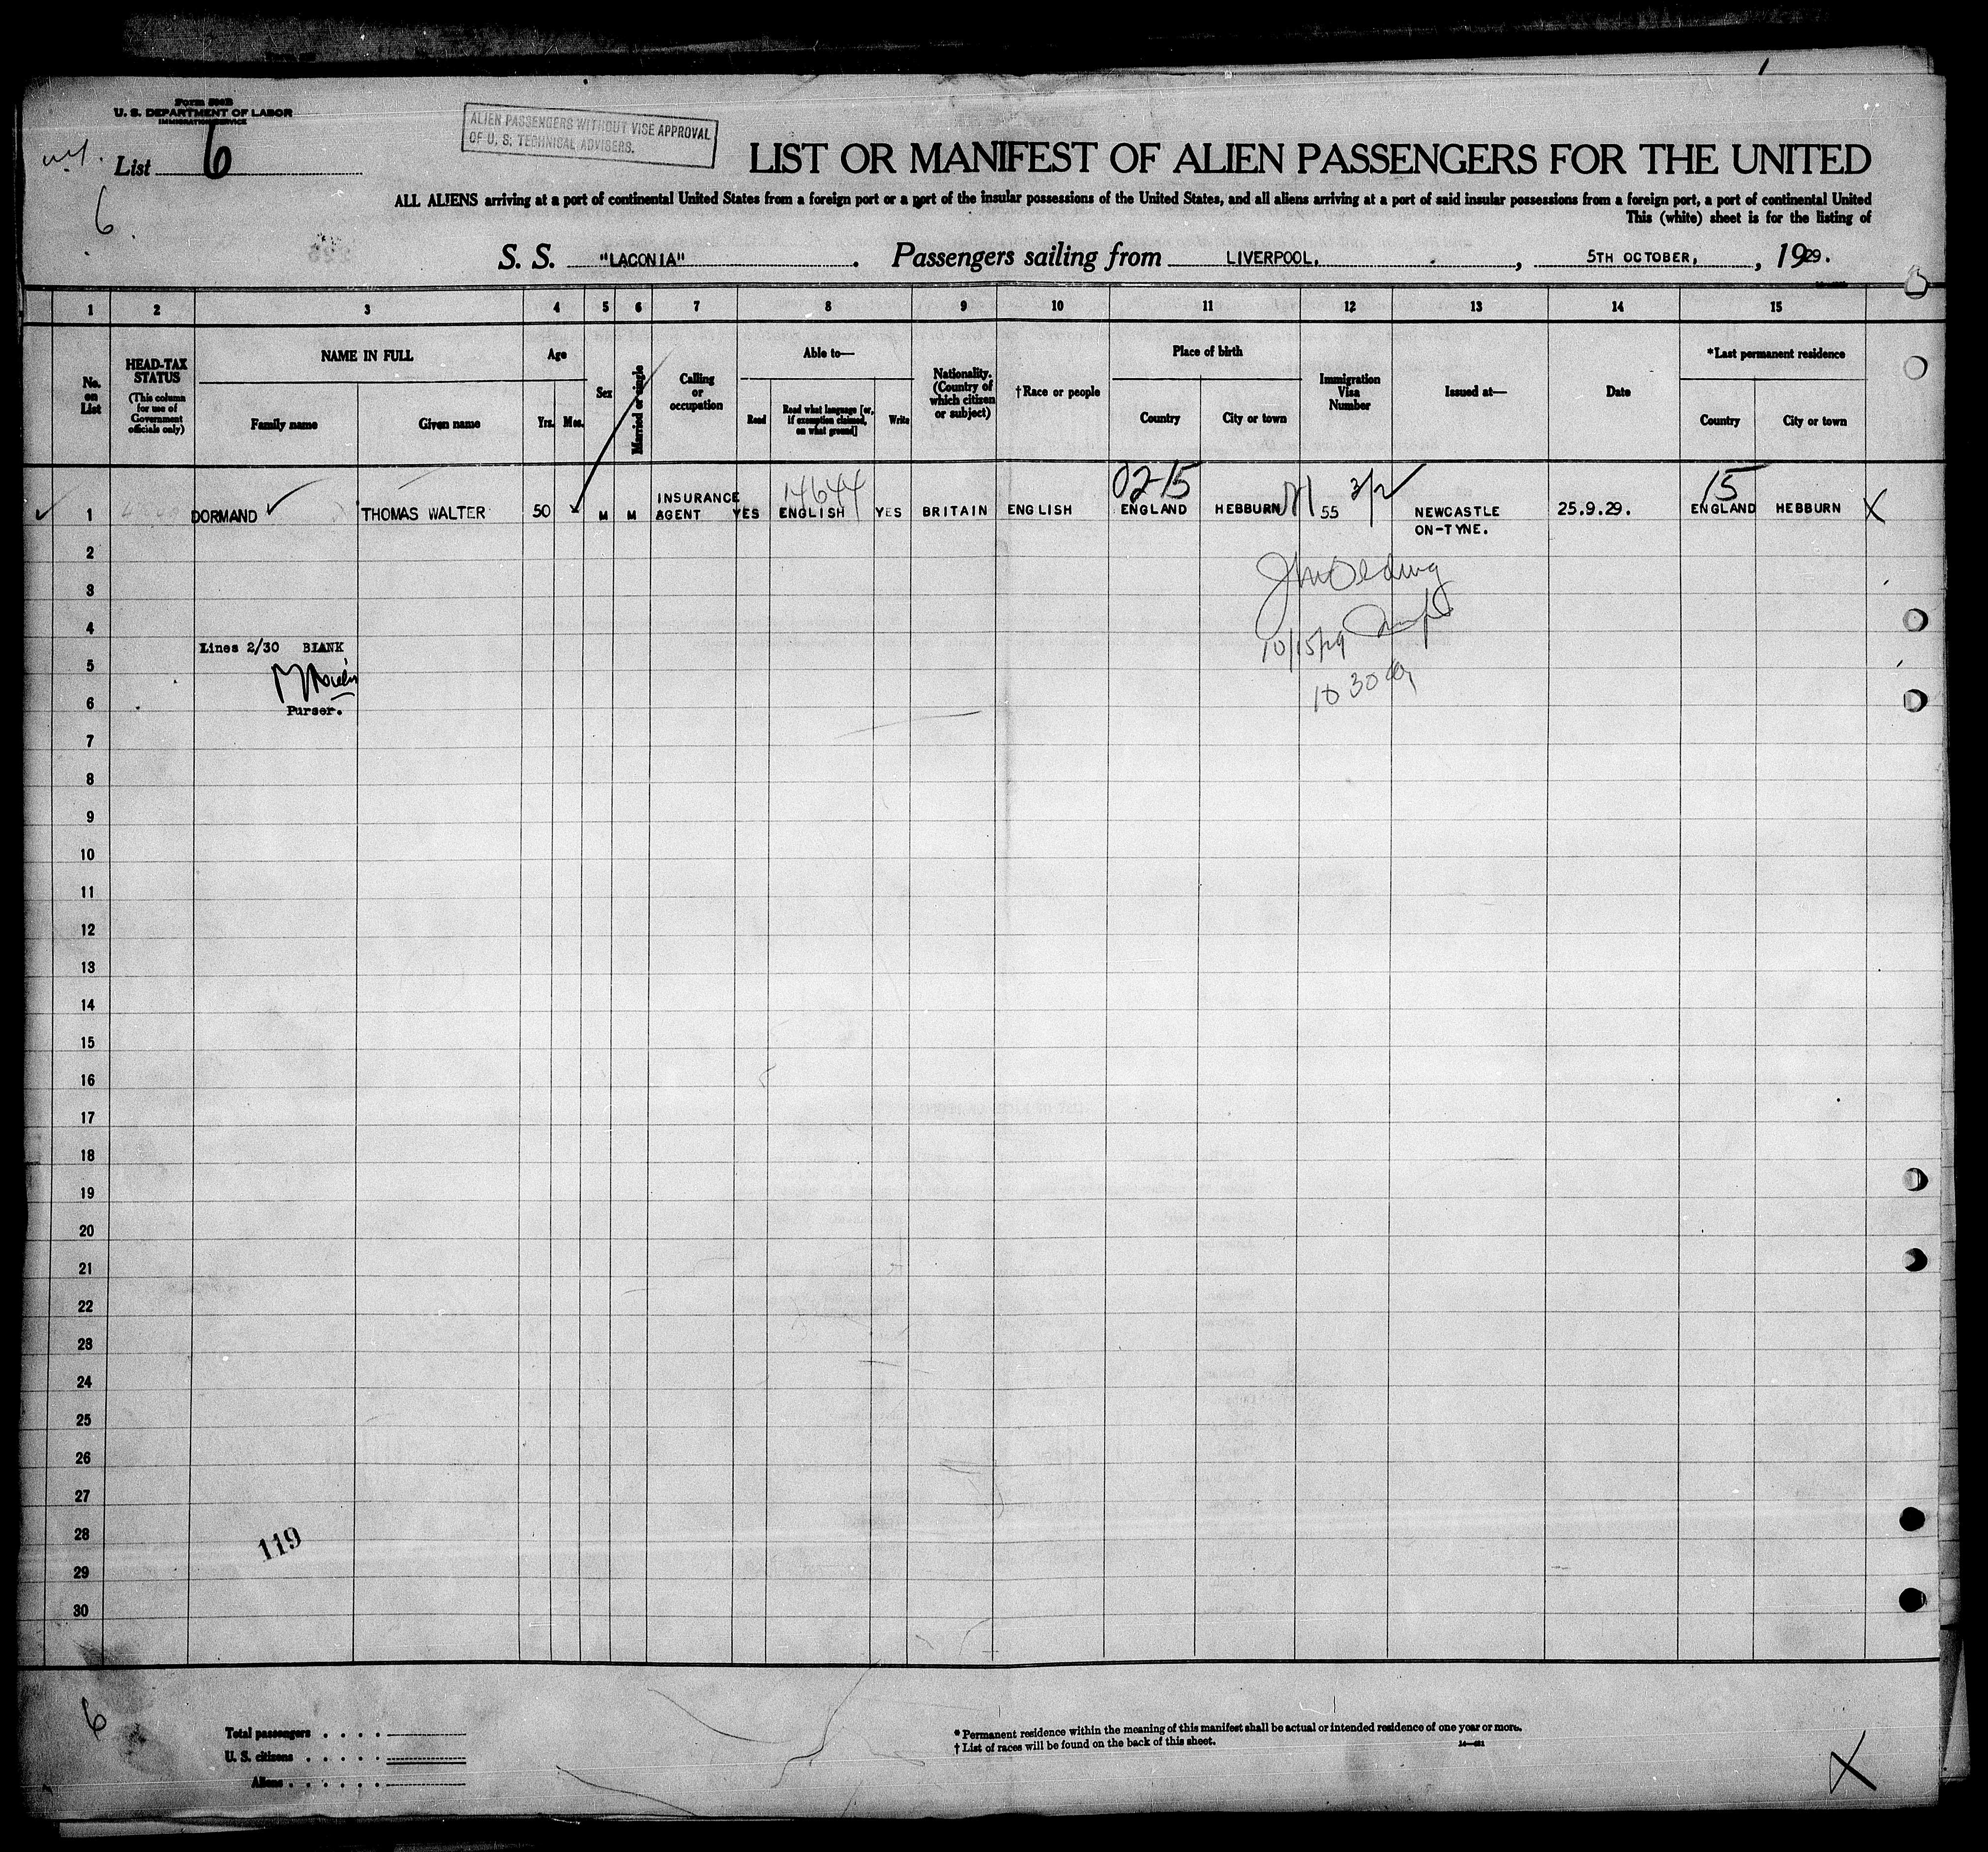 Form 500B
U. S. DEPARTMENT OF LABOR
IMMIGRATION SERVICE
List 6
6
ALIEN PASSENGERS WITHOUT VISE APPROVAL
OF U. S. TECHNICAL ADVISERS.
LIST OR MANIFEST OF ALIEN PASSENGERS FOR THE UNITED
ALL ALIENS arriving at a port of continental United States from a foreign port or a port of the insular possessions of the United States, and all aliens arriving at a port of said insular possessions from a foreign port, a port of continental United
This (white) sheet is for the listing of
S. S. "LACONIA". Passengers sailing from LIVERPOOL, , 5TH OCTOBER, , 1929.
1 2 3 4 5 6 7 8 9 10 11 12 13 14 15
No. on List
HEAD-TAX STATUS
(This column for use of Government officials only)
NAME IN FULL
Family name Given name
Age
Yrs. Mos.
Sex
Married or single
Calling or occupation
Able to—
Read
Read what language [or, if exemption claimed, on what ground]
Write
Nationality. (Country of which citizen or subject)
†Race or people
Place of birth
Country City or town
Immigration Visa Number
Issued at—
Date
*Last permanent residence
Country City or town
14644 02-15 3/2 15
1 DORMAND THOMAS WALTER 50 M M INSURANCE AGENT YES ENGLISH YES BRITAIN ENGLISH ENGLAND HEBBURN 55 NEWCASTLE ON-TYNE. 25.9.29. ENGLAND HEBBURN X
2
3
4
10/15/29
Lines 2/30 BLANK
5
10 30
6
Purser.
7
8
9
10
11
12
13
14
15
16
17
18
19
20
21
22
23
24
25
26
27
28
119
29
30
6
Total passengers . . . .
U. S. citizens . . . . .
Aliens . . . . . .
* Permanent residence within the meaning of this manifest shall be actual or intended residence of one year or more.
† List of races will be found on the back of this sheet.
X